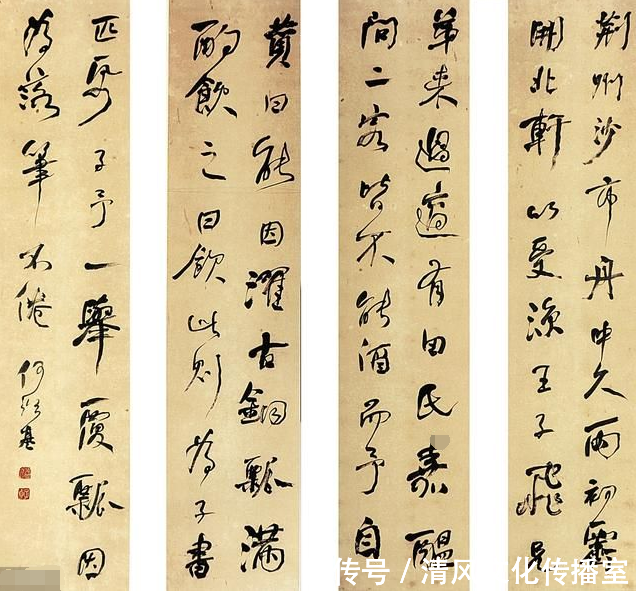 荆州沙市舟中久雨初霽
開北軒以受涼王子飛兄
弟来過適有田氏嘉醞
問二客皆不能酒而予自
賁曰能因濯古銅瓢滿
酌飲之曰飲此則為子書
匹子予一舉覆瓢因
為落筆不倦 何紹基
传号 / 清风化传播室